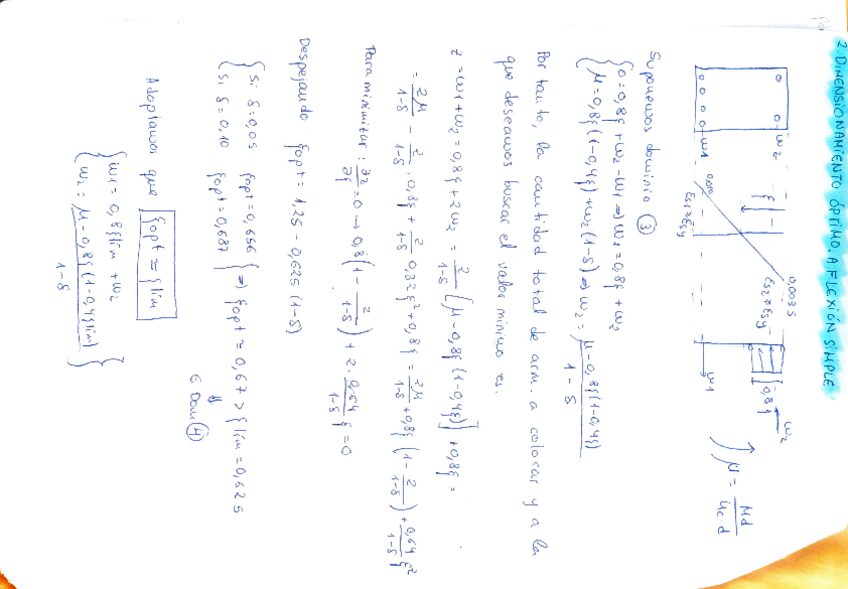 2. DIMENSIONAMIENTO ÓPTIMO. A FLEXIÓN SIMPLE
w2
w1
0,010
εs1 ≥ εsy
ξ
0,0035
εs2 ≥ εsy
0,8ξ
w2
w1
μ = Md / Uc d
Suponemos dominio ③
{ 0 = 0,8ξ + w2 - w1 ⇒ w1 = 0,8ξ + w2
μ = 0,8ξ(1-0,4ξ) + w2(1-δ) ⇒ w2 = μ - 0,8ξ(1-0,4ξ) / 1-δ
Por tanto, la cantidad total de arm. a colocar y a la
que deseamos buscar el valor mínimo es:
z = w1 + w2 = 0,8ξ + 2w2 = 2/1-δ [μ - 0,8ξ(1-0,4ξ)] + 0,8ξ =
= 2μ/1-δ - 2/1-δ · 0,8ξ + 2/1-δ 0,32ξ² + 0,8ξ = 2μ/1-δ + 0,8ξ(1 - 2/1-δ) + 0,64/1-δ ξ²
Para minimizar: ∂z/∂ξ = 0 → 0,8(1 - 2/1-δ) + 2 · 0,64/1-δ ξ = 0
Despejando ξopt = 1,25 - 0,625 (1-δ)
{ si δ = 0,05 ξopt = 0,656
si δ = 0,10 ξopt = 0,687 } ⇒ ξopt = 0,67 > ξlim = 0,625
⇓
∈ Dom ④
Adoptamos que ξopt = ξlim
{ w1 = 0,8ξlim + w2
w2 = μ - 0,8ξ(1-0,4ξlim) / 1-δ }